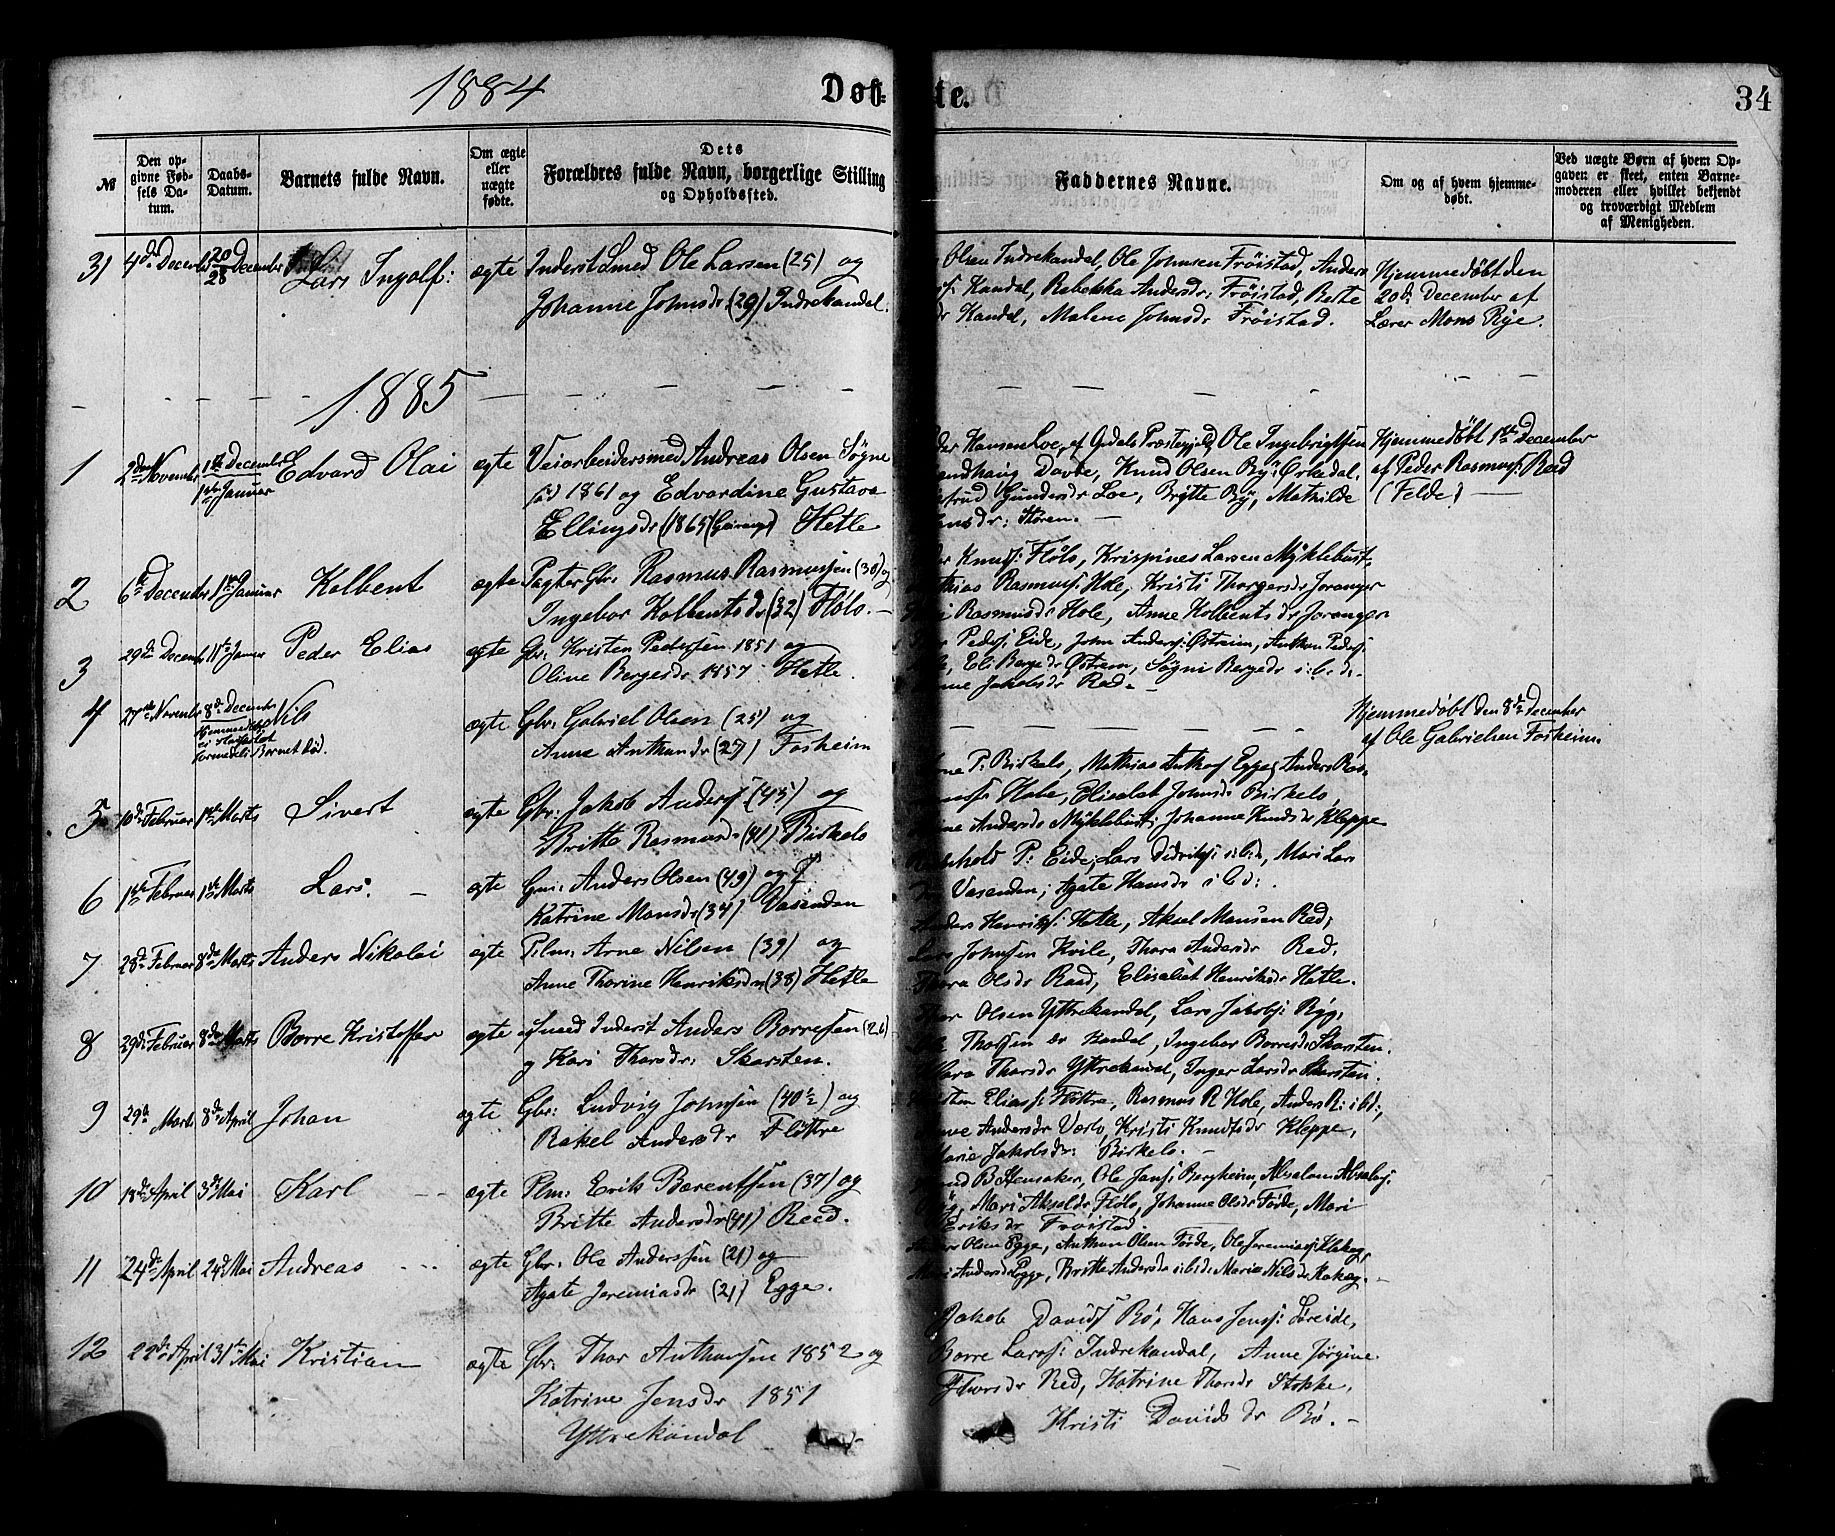 1884
Døb-
te.
34
№
Den op-
givne Fød-
sels Da-
tum.
Daabs-
Datum.
Barnets fulde Navn.
Om ægte
eller
uægte
fødte.
Dets
Forældres fulde Navn, borgerlige Stilling
og Opholdssted.
Faddernes Navne.
Om og af hvem hjemme-
døbt.
Ved uægte Børn af hvem Op-
gaven er skeet, enten Barne-
moderen eller hvilket bekjendt
og troværdigt Medlem
af Menigheden.
31 4de Decembr 20/28 December Lars Ingolf: ægte Inderst Smed Ole Larsen (25) og
Johanne Johnsdr. (29) Indrekandal.
Olsen Indrekandal, Ole Johnsen Frøistad, Anders
Kandal, Rabekka Andersdr. Frøistad, Berte
Kandal, Malene Johnsdr Frøistad.
Hjemmedøbt den
20de December af
Lærer Mons Rye.
1885
1 2den November 1ste December 1ste Januar Edvard Olai ægte Veiarbeidersmed Andreas Olsen Søgne
1861 og Edvardine Gustava
Ellingsdr (1865) (Geiranger) Hetle
Hansen Loe, af Opdals Præstegjeld, Ole Ingebrigtsen
Dovre, Knud Olsen By: Orkedal,
Gundersdr Loe, Brytte By, Mathilde
Støren.
Hjemmedøbt 1ste December
af Peder Rasmuss: Raad
(Felde)
2 6te December 1ste Januar Kolbent ægte Pagter Gbr. Rasmus Rasmussen (30) og
Ingebor Kolbentsdr (32) Flølo.
Knuds: Flølo, Krispines Larsen Myklebust
Rasmuss: Hole, Kristi Thorgersdr Joranger
Rasmusdr Hole, Anne Kolbentsdr Joranger
3 29de Decembr 11te Januar Peder Elias ægte Gbr. Kristen Pedersen 1851 og
Oline Bergesdr 1857 Hetle.
Peders: Eide, John Anders: Østreim, Anthon Peders:
Eli Bergedr Østrem, Søgni Bergedr i.b.d.
Jakobsdr Red.
4 27de Novembr 8de Decembr Nils ægte Gbr: Gabriel Olsen (25) og
Hjemmedøbt
formedelst Barnet død.
Anne Anthunsdr (27) Fosheim
Hjemmedøbt den 8de December
af Ole Gabrielsen Fosheim.
5 10de Februar 1ste Marts Sivert ægte Gbr: Jakob Anders: (45) og
Britte Rasmusdr (41) Birkelo
P. Birkelo, Mathias Anthos: Egge, Anders Ras-
Hole, Elisabet Johnsdr Birkelo,
Andersdr Myklebust, Johanne Knudsdr Kleppe
6 1ste Februar 1ste Marts Lars. ægte Gmr: Anders Olsen (49) og
Katrine Monsdr (34) Vasenden
P. Eide, Lars Didriks: i.b.d., Mari Lars
Vasenden; Agate Hansdr i.b.d.
7 28de Februar 8de Marts Anders Nikolai ægte Plm: Arne Nilsen (39) og
Anne Thorine Henriksdr (38) Hetle
Anders Henriks: Hetle, Aksel Monsen Red,
Lars Johnsen Kvile, Thora Andersdr Red,
Thora Olsdr Raad, Elisabet Henriksdr Hetle.
8 29de Februar 8de Marts Borre Kristoffer ægte Smed Inderst Anders Borresen (26)
og Kari Thorsdr. Skarsten.
Thor Olsen Yttrekandal, Lars Jakobs: Ryg,
Thorsen Kandal, Ingebor Borresdr Skarsten.
Thorsdr Yttrekandal, Inger Larsdr Skarsten.
9 29de Marts 8de April Johan ægte Gbr: Ludvig Johnsen (40½) og
Rakel Andersdr Fløttre
Elias: Fløttre, Rasmus R Hole, Anders R: i.b.d.,
Andersdr Værlo, Kristi Knudsdr Kleppe,
Marie Jakobsdr: Birkelo.
10 18de April 3de Mai Karl ægte Plm: Erik Bærentsen (37) og
Britte Andersdr (41) Reed.
Ole Jans: Bergheim, Absalon Absalos:
Mari Akseldr Flølo, Johanne Olsdr Førde, Mari
Eriksdr Frøistad.
11 24de April 24de Mai Andreas ægte Gbr: Ole Andersen (21) og
Agate Jeremiasdr (21) Egge.
Olsen Egge, Anthon Olsen Førde, Ole Jeremias:
Andersdr Egge, Britte Andersdr i.b.d. Marie Nilsdr
12 22de April 31te Mai Kristian ægte Gbr. Thor Anthonsen 1852 og
Katrine Jensdr 1851
Yttrekandal
Jakob Davids: Bø, Hans Jens: Løreide,
Borre Lars: Indrekandal, Anne Jørgine
Thorsdr Red, Katrine Thorsdr Stokke,
Kristi Davidsdr Bø.